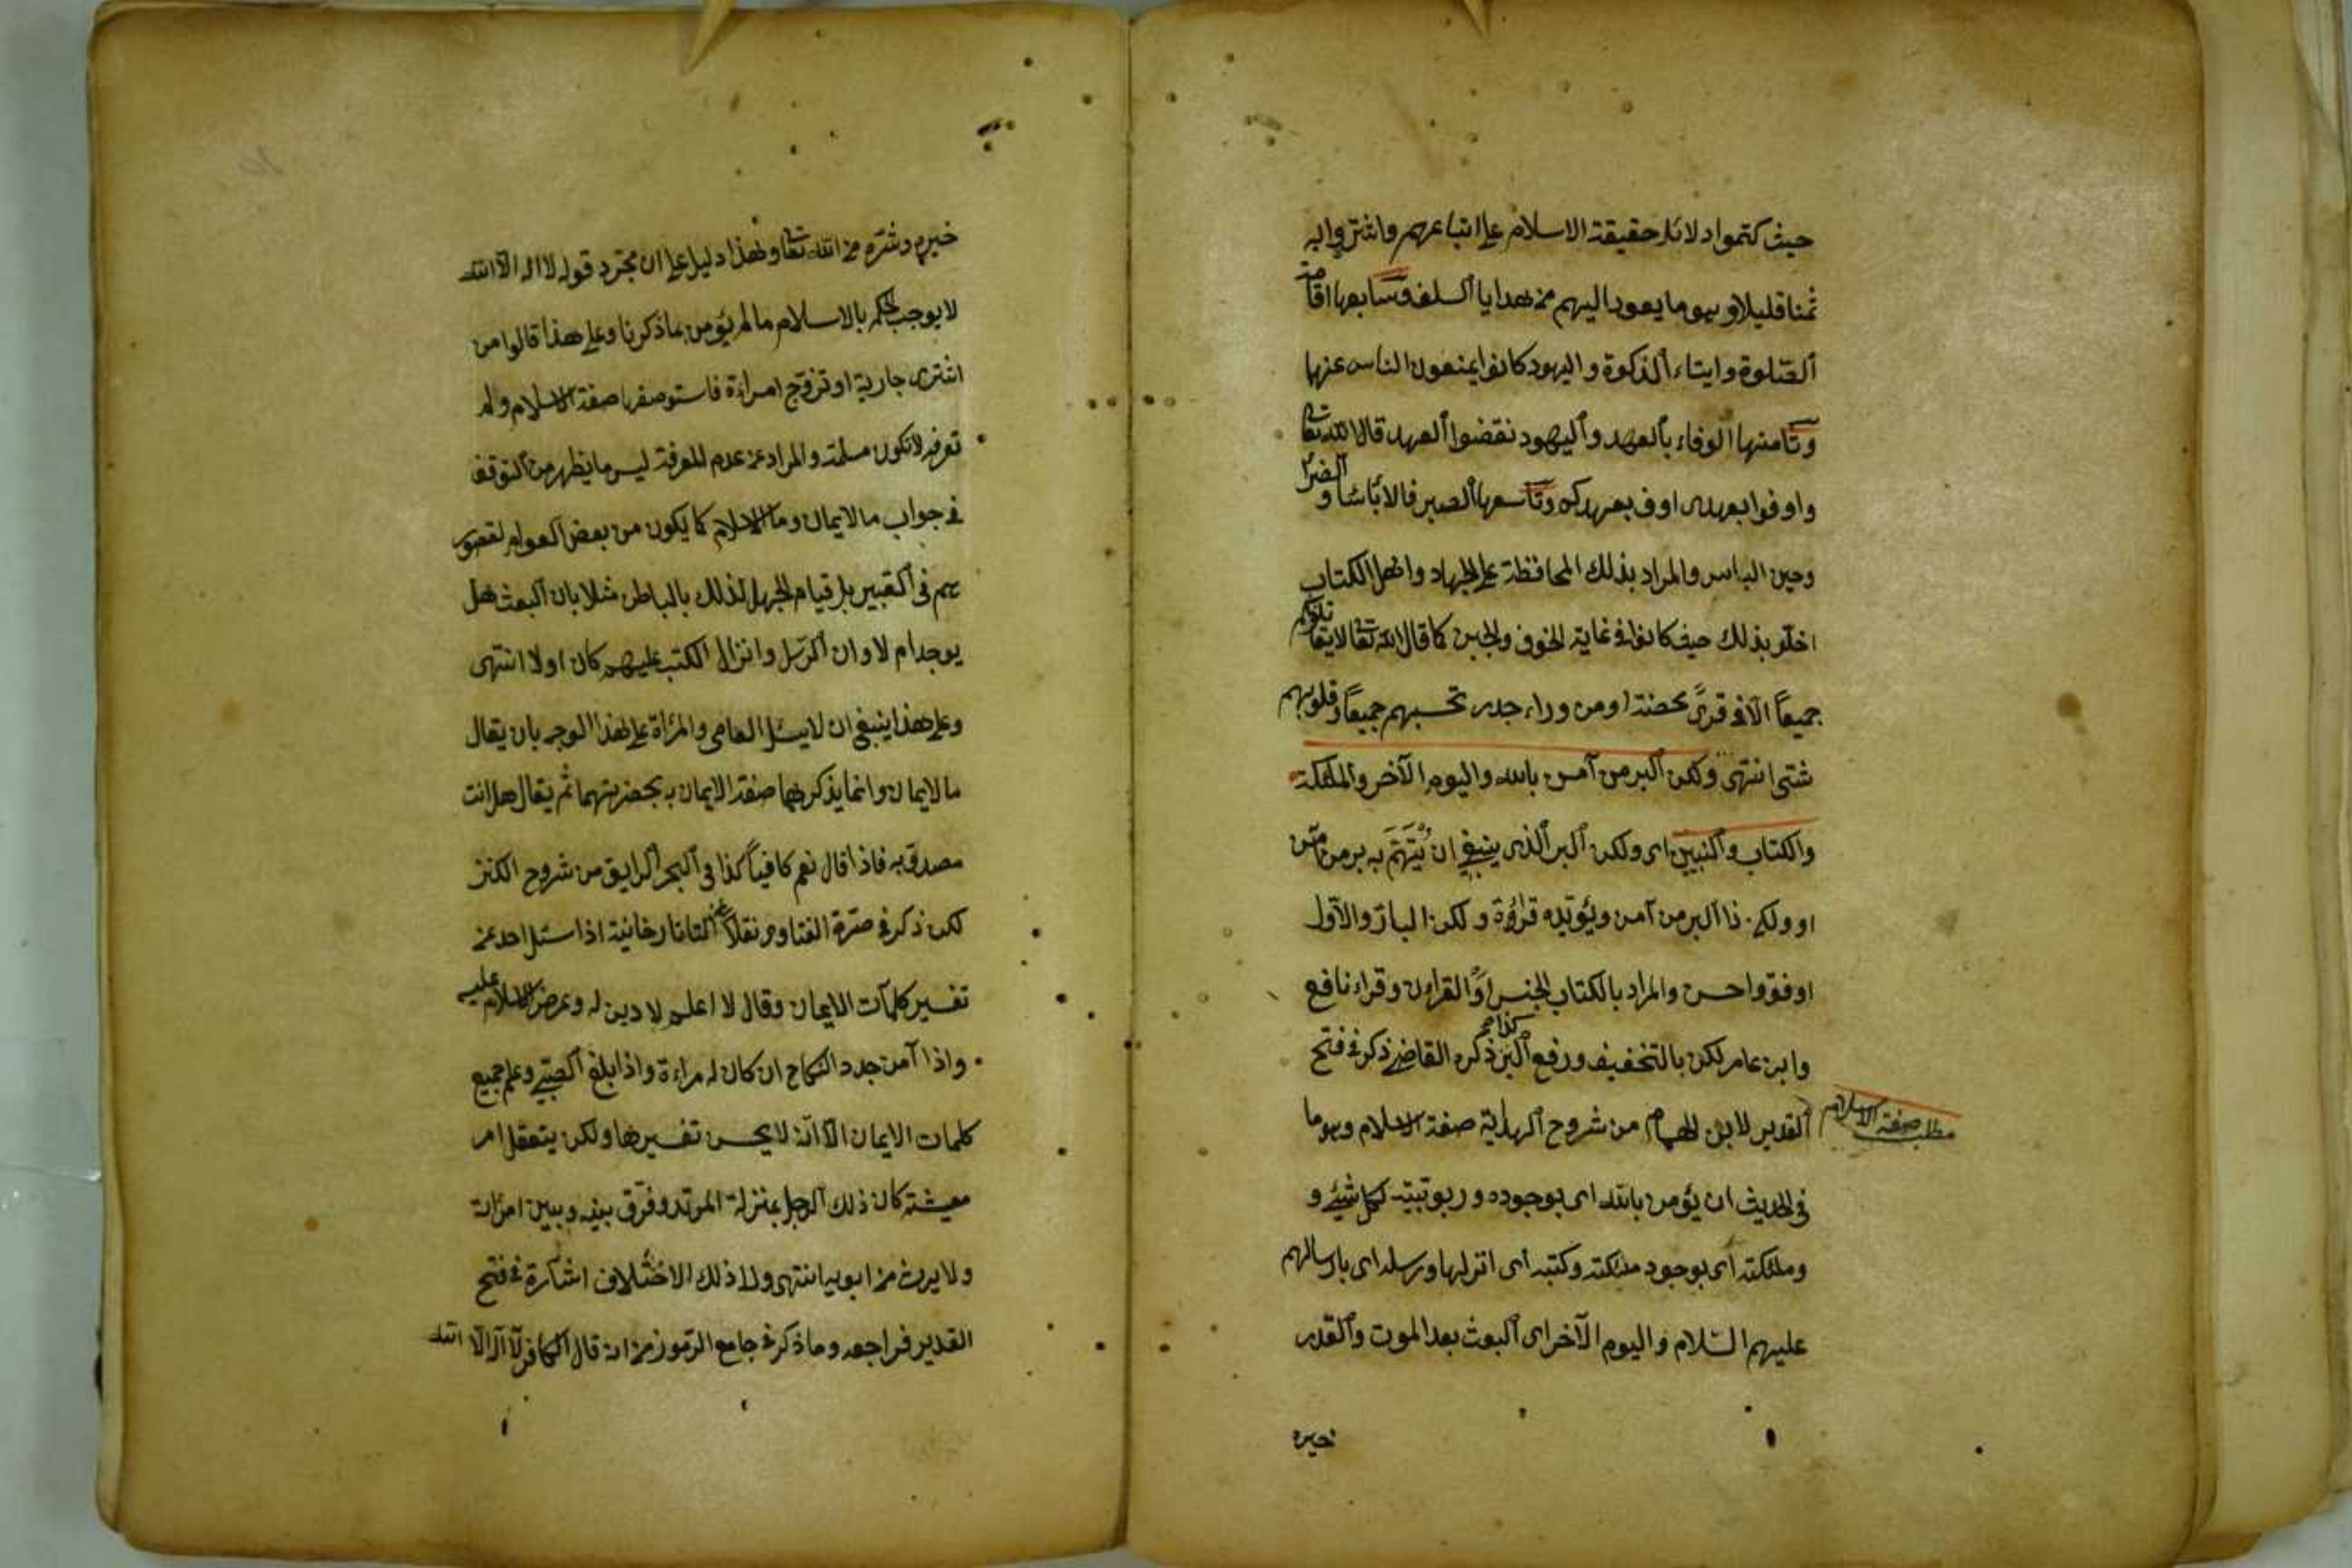 حيث كتموا دلائل حقيقة الاسلام على اتباعهم واشتروا به
ثمنا قليلا وهو ما يعود اليهم من هدايا السلفة وسابعها اقامة
الصلوة وايتاء الزكوة واليهود كانوا يمنعون الناس عنها
وثامنها الوفاء بالعهد واليهود نقضوا العهد قال الله تعالى
واوفوا بعهدى اوف بعهدكم وتاسعها الصبر فى الباسا والضرا
وحين الباس والمراد بذلك المحافظة على الجهاد واهل الكتاب
اخلّو بذلك حيث كانوا فى غاية الخوف والجبن كما قال الله تعالى لا يقاتلونكم
جميعاً الا فى قرىً محصنة او من وراء جدر تحسبهم جميعاً وقلوبهم
شتى انتهى ولكن البر من آمن بالله واليوم الآخر والملئكة
والكتاب والنبيين اى ولكن البر الذى ينبغى ان يُهتَمَّ به بر من آمن
او ولكن ذا البر من آمن ويؤيده قراءة ولكن البار والاول
اوفق واحسن والمراد بالكتاب الجنس او القرأن وقراء نافع
وابن عامر لكن بالتخفيف ورفع البر كذا ذكره القاضى ذكر فى فتح
القدير لابن الهمام من شروح الهداية صفة الاسلام وهو ما
مطلب صفة الاسلام
فى الحديث ان يؤمن بالله اى بوجوده وربوبيته لكل شيئ و
وملئكته اى بوجود ملئكته وكتبه اى انزلها ورسله اى بارسالهم
عليهم السلام واليوم الآخر اى البعث بعد الموت والقدر
خيره
خيره وشره من الله تعالى وهذا دليل على ان مجرد قوله لا اله الا الله
لا يوجب الحكم بالاسلام ما لم يؤمن بما ذكرنا وعلى هذا قالوا من
اشترى جارية او تزوج امراءة فاستوصفها صفة الاسلام ولم
تعرفه لا تكون مسلمة والمراد من عدم المعرفة ليس ما يظهر من التوقف
فى جواب ما الايمان وما الاسلام كما يكون من بعض العوام لقصور
هم فى التعبير بل قيام الجهل لذلك بالباطن مثلا بان البعث هل
يوجد ام لا وان الرسل وانزال الكتب عليهم كان او لا انتهى
وعلى هذا ينبغى ان لا يسئل العامى والمرأة على هذا الوجه بان يقال
ما الايمان وانما يذكر لهما صفة الايمان به بحضرتهما ثم يقال هل انت
مصدق به فاذا قال نعم كافياً كذا فى البحر الرايق من شروح الكنز
لكن ذكر فى صرة الفتاوى نقلاً عن التاتارخانية اذا سئل احد عن
تفسير كلمآت الايمان وقال لا اعلم لا دين له وعرض الاسلام عليه
واذا آمن جدد النكاح ان كان له مراءة واذا بلغ الصبى وعلم جميع
كلمات الايمان الا انّه لا يحسن تفسيرها ولكن يتعقل امر
معيشته كان ذلك الرجل بمنزلة المرتد وفرّق بينه وبين امرأته
ولا يرث من ابويه انتهى ولذلك الاختلاف اشارة فى فتح
القدير فراجعه وما ذكر فى جامع الرموز من انه قال الكافر لا اله الا الله